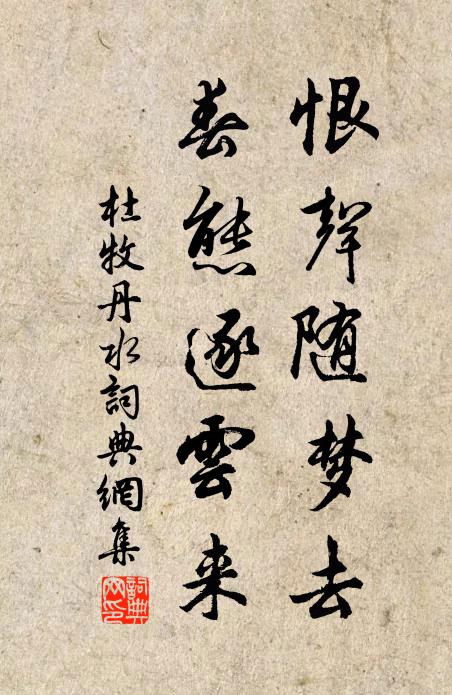 恨聲随梦去
春態逐雲来
杜牧丹水詞典網集
詞典网印